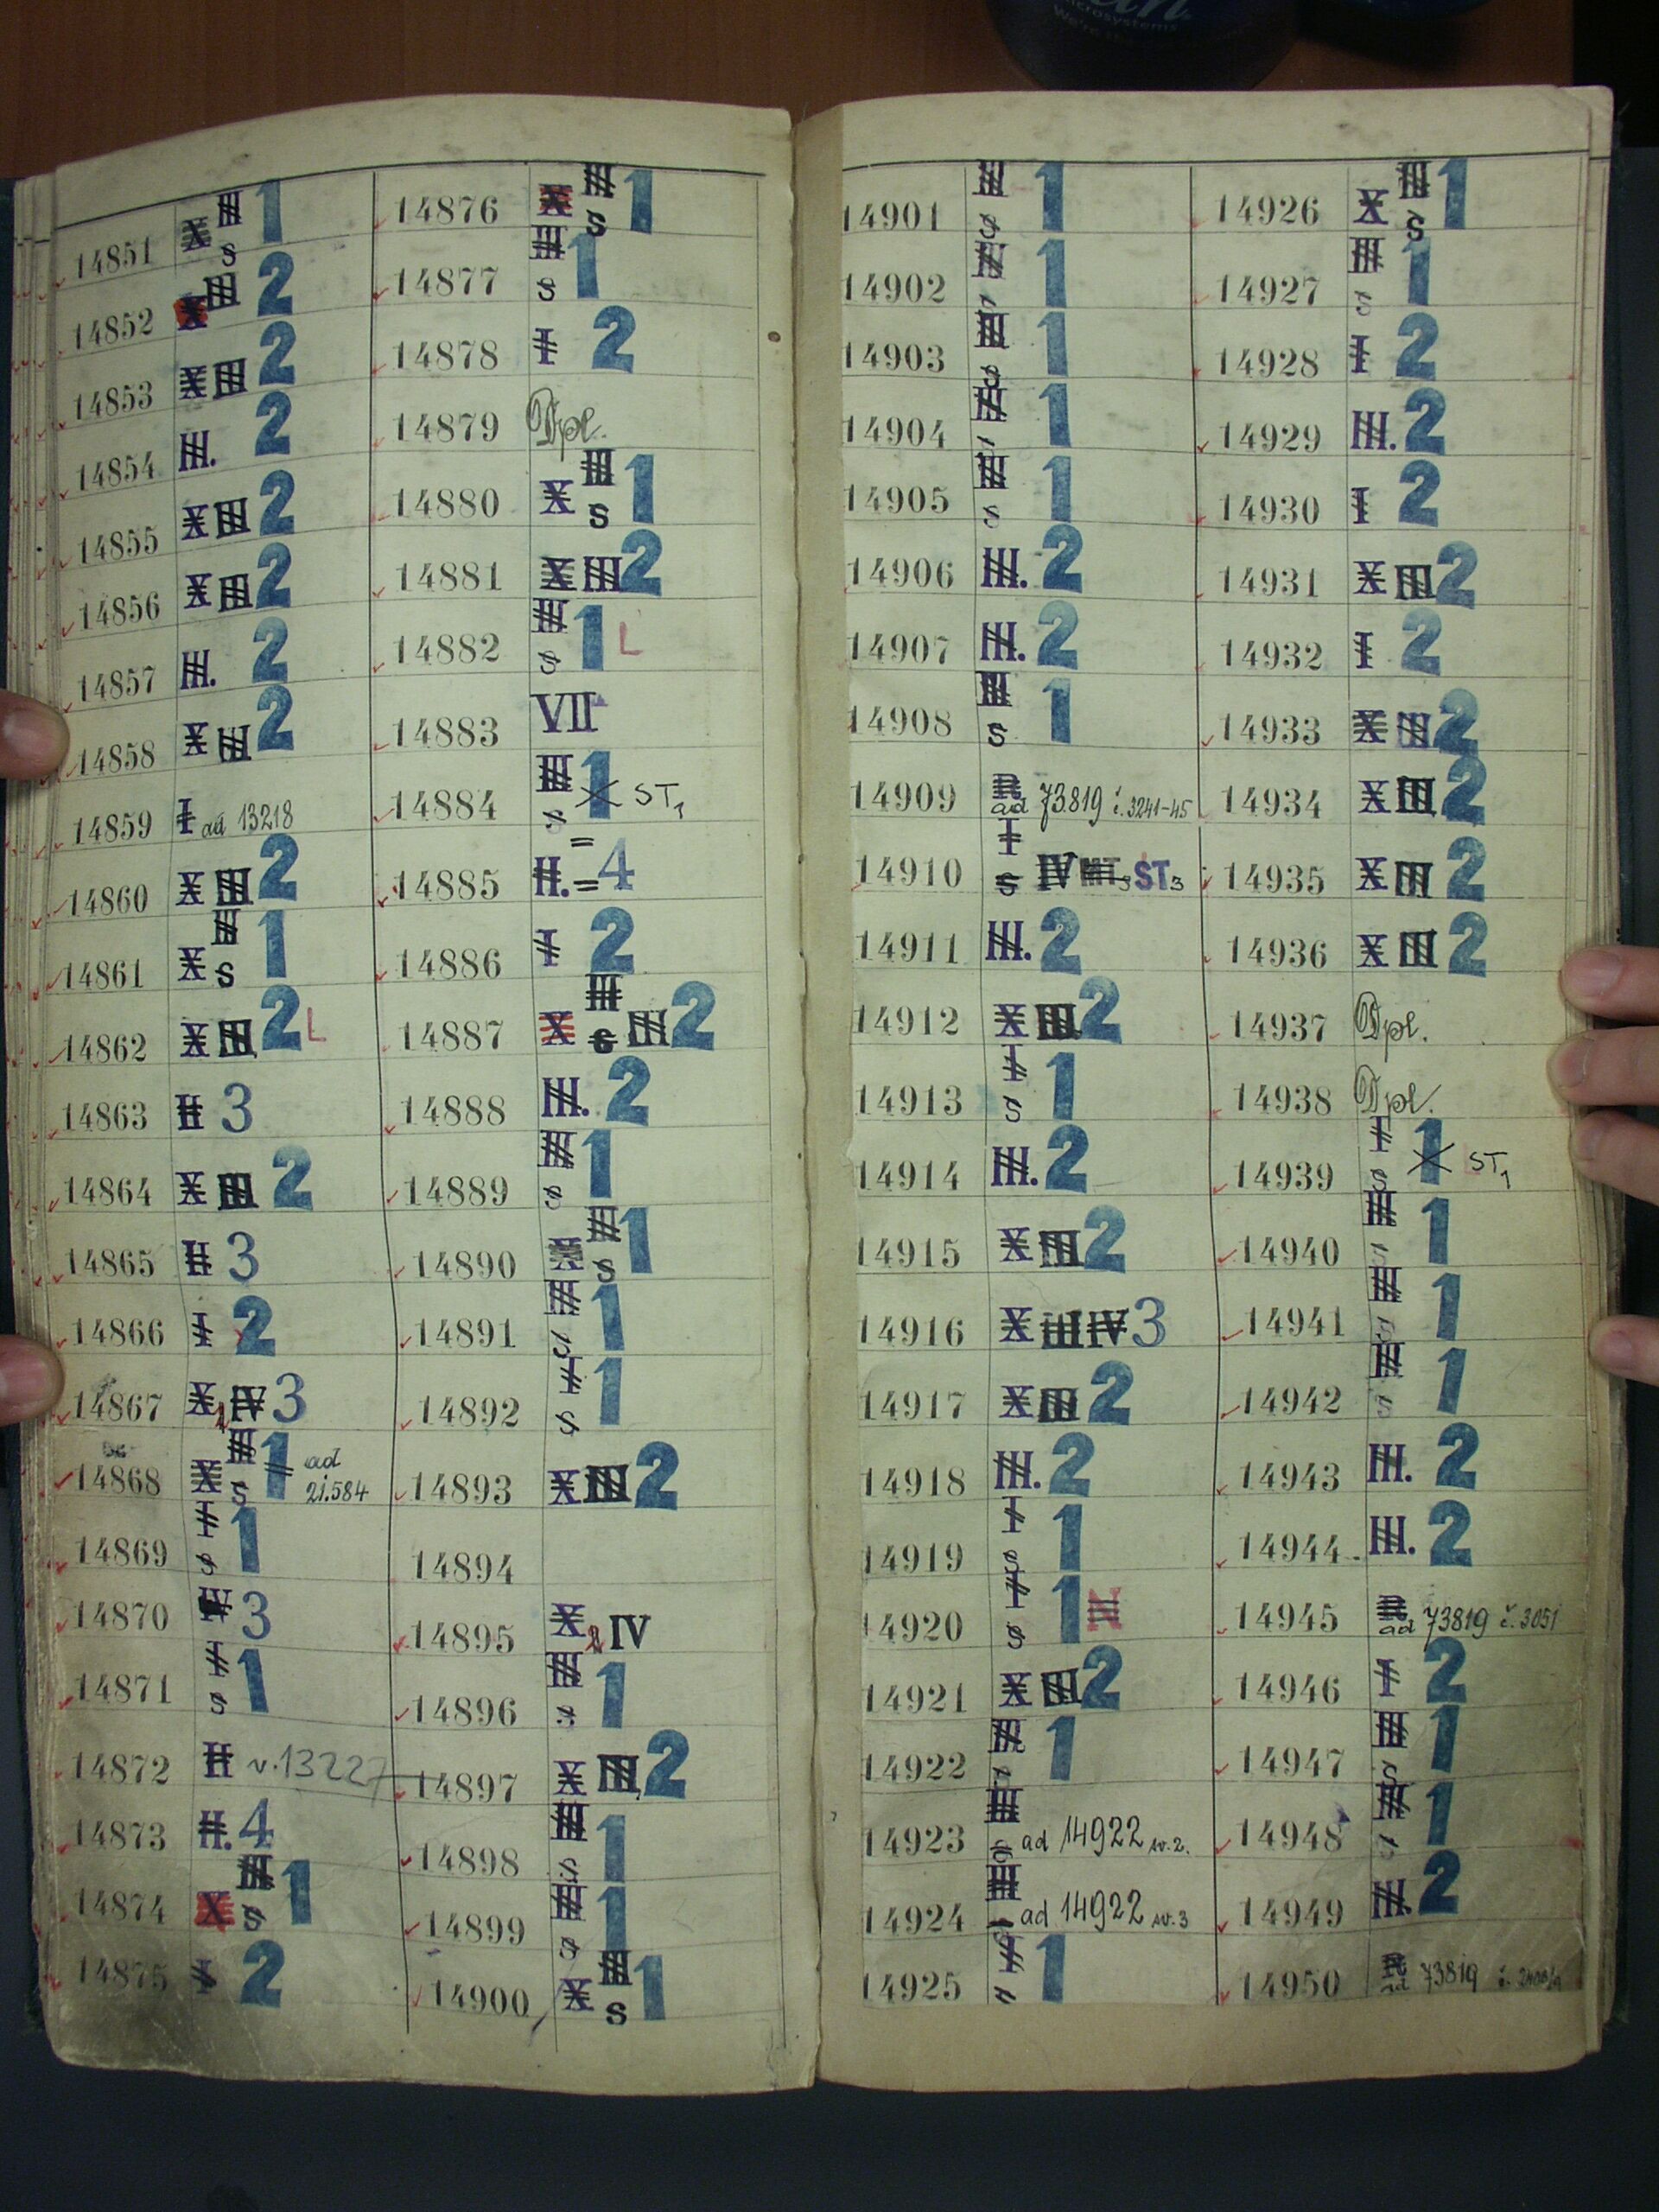 microsystems
14851 X III s 1
14852 X III 2
14853 X III 2
14854 III. 2
14855 X III 2
14856 X III 2
14857 III. 2
14858 X III 2
14859 I ad 13218
14860 X III 2
14861 X III s 1
14862 X III 2 L
14863 II 3
14864 X III 2
14865 II 3
14866 I 2
14867 X IV 3
14868 X III s 1 ad 21.584
14869 I s 1
14870 IV 3
14871 I s 1
14872 II v. 13227
14873 II. 4
14874 X III s 1
14875 I 2
14876 X III s 1
14877 III s 1
14878 I 2
14879 Dpl.
14880 X III s 1
14881 X III 2
14882 III s 1 L
14883 VII
14884 III s 1 ST1
14885 II. 4
14886 I 2
14887 X III s III 2
14888 III. 2
14889 III s 1
14890 X III s 1
14891 III s 1
14892 I s 1
14893 X III 2
14894
14895 X IV
14896 III s 1
14897 X III 2
14898 III s 1
14899 III s 1
14900 X III s 1
14901 III s 1
14902 III s 1
14903 III s 1
14904 III s 1
14905 III s 1
14906 III. 2
14907 III. 2
14908 III s 1
14909 ad 73819 č. 3241-45
14910 I s IV ST3
14911 III. 2
14912 X III 2
14913 I s 1
14914 III. 2
14915 X III 2
14916 X III IV 3
14917 X III 2
14918 III. 2
14919 I s 1
14920 I s 1 N
14921 X III 2
14922 III s 1
14923 III s ad 14922 sv. 2.
14924 III ad 14922 sv. 3
14925 I s 1
14926 X III s 1
14927 III s 1
14928 I 2
14929 III. 2
14930 I 2
14931 X III 2
14932 I 2
14933 X III 2
14934 X III 2
14935 X III 2
14936 X III 2
14937 Dpl.
14938 Dpl.
14939 I s 1 ST1
14940 III s 1
14941 III s 1
14942 III s 1
14943 III. 2
14944 III. 2
14945 ad 73819 č. 3051
14946 I 2
14947 III s 1
14948 III s 1
14949 III. 2
14950 ad 73819